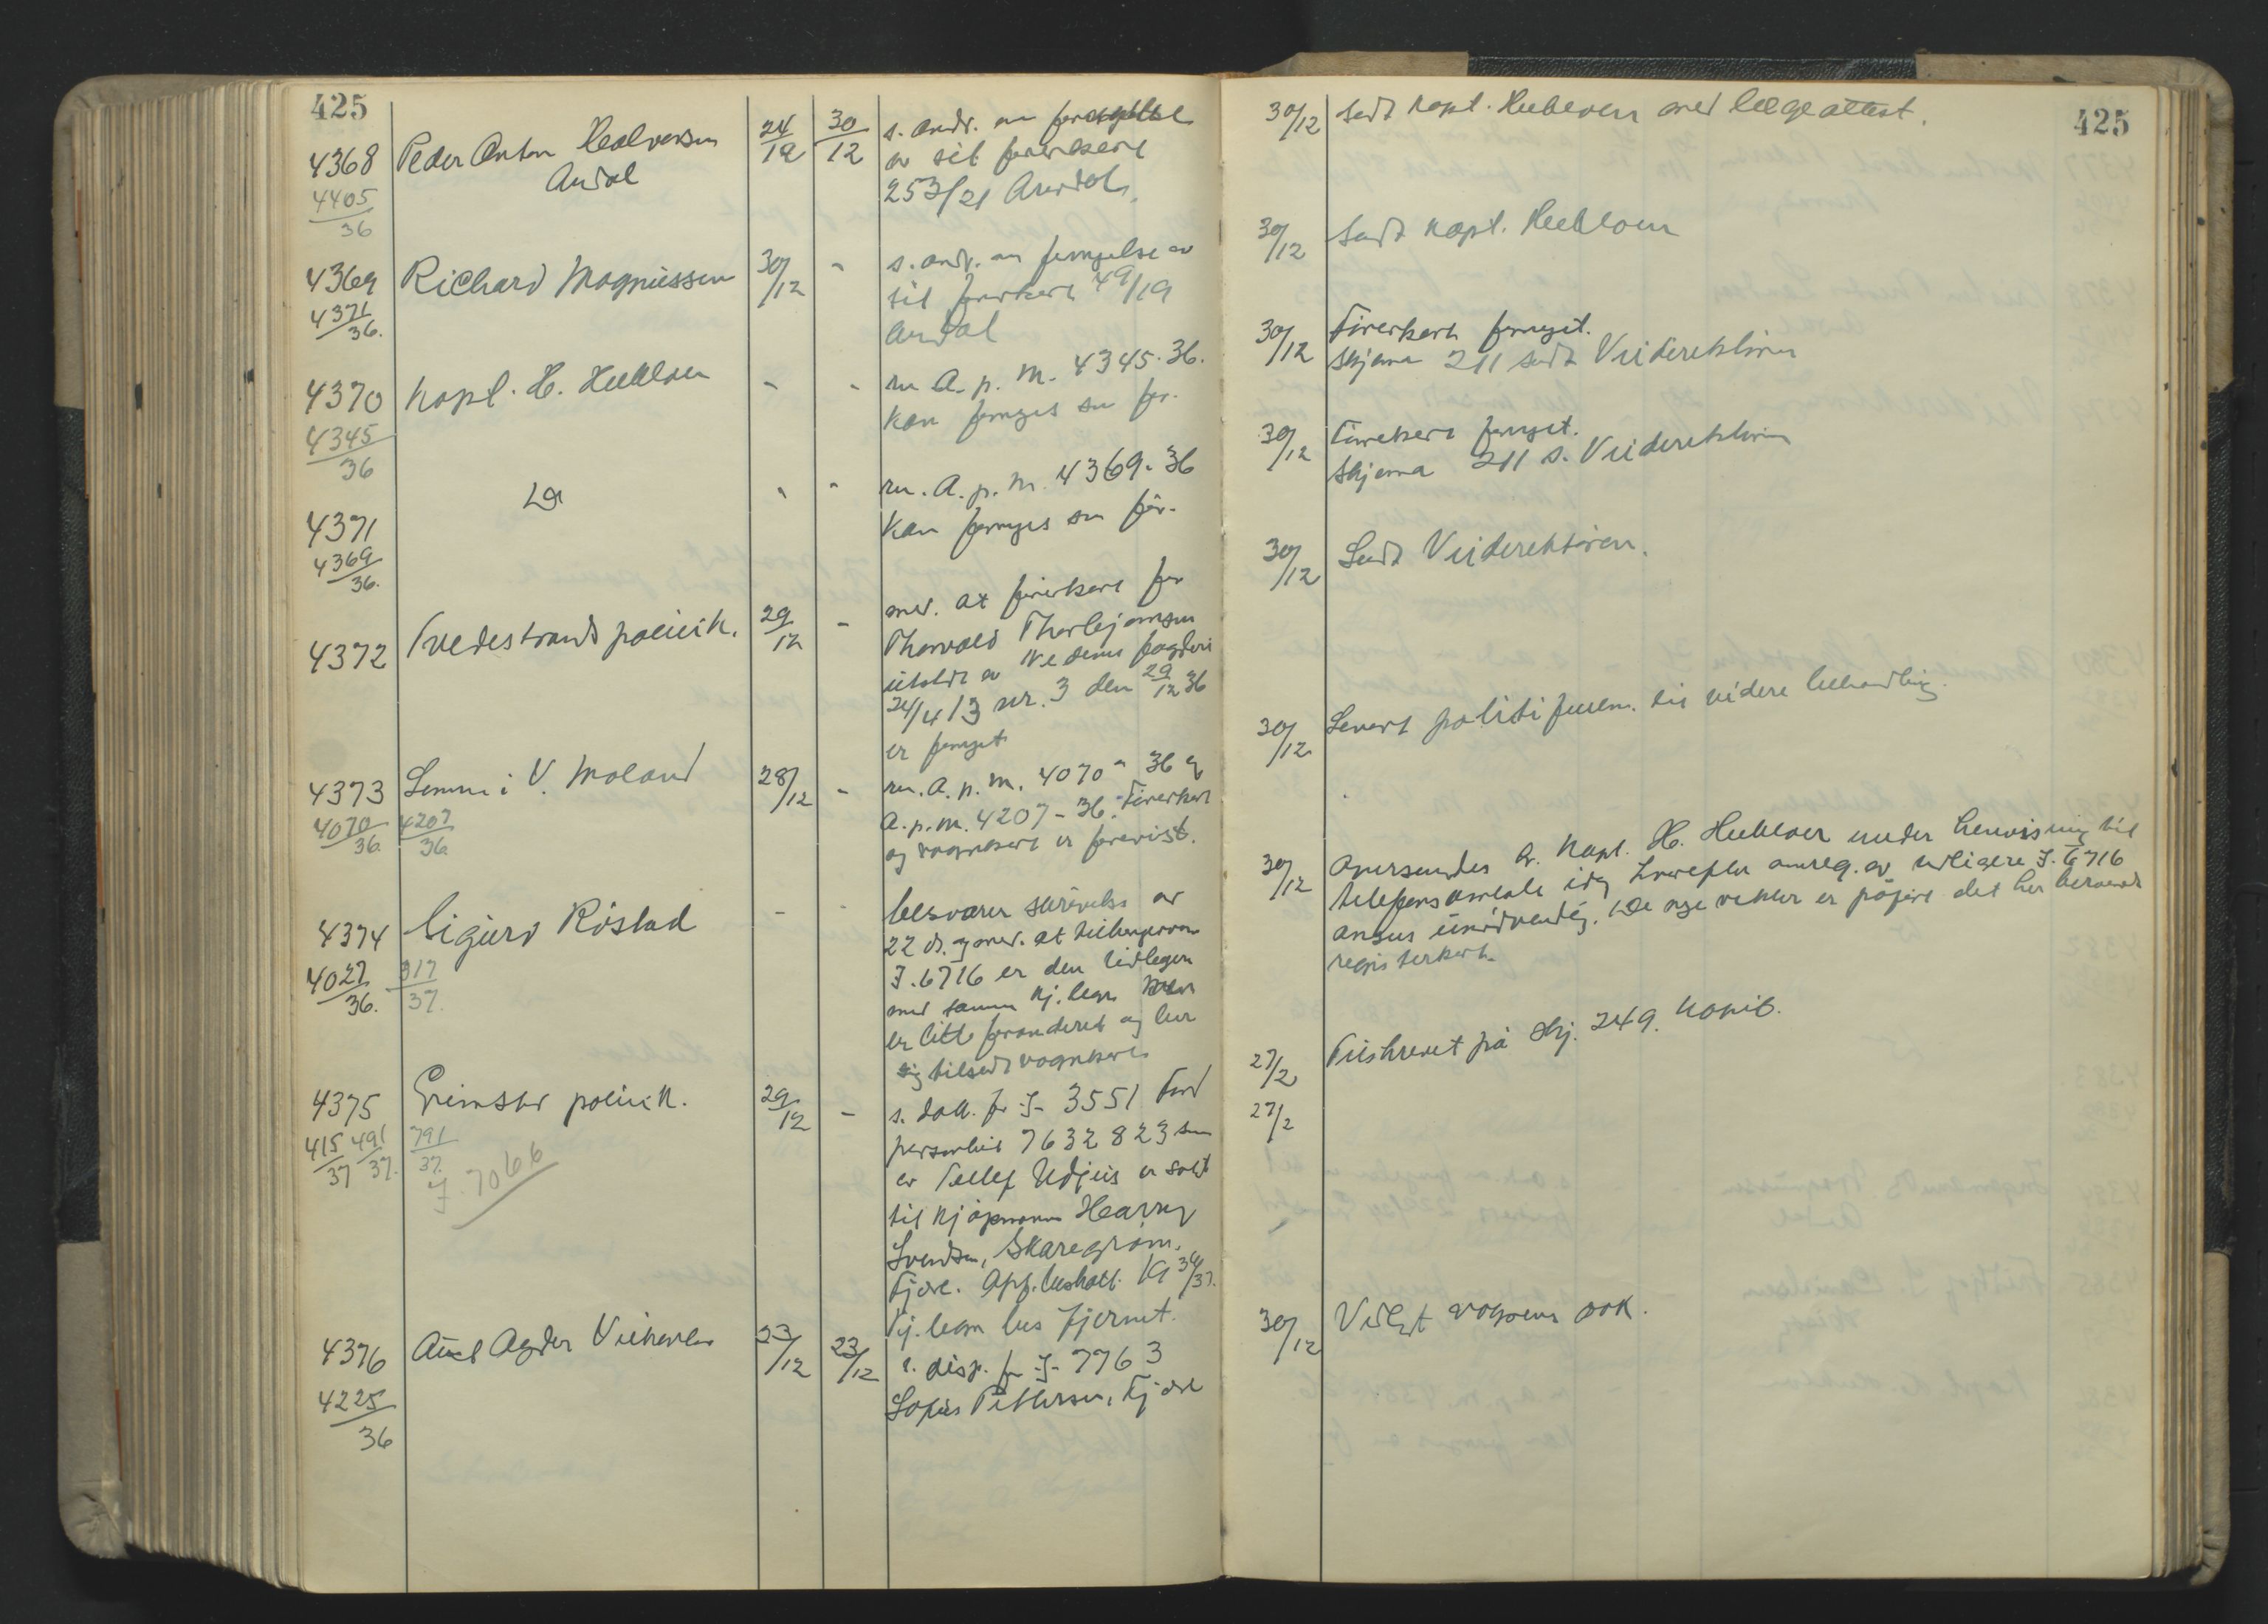 425
4368 Peder Anton Halvorsen 24/12 30/12 s. andr. om fornyelse
Arendal av sit førerkort
4405/36 253/21 Arendal.
4369 Richard Magnussen 30/12 - s. andr. om fornyelse av
4371/36. sit førerkort 49/19
Arendal
4370 Kapt. H. Heibloer - - m A. p. m. 4345-36.
4345/36 Kan fornyes som før.
4371 Do - - m. A. p. m. 4369-36
4369/36. Kan fornyes som før.
4372 Tvedestrand politik. 29/12 - med. at førerkort for
Thorvald Thorbjørnsen
utstedt av Nedenes fogderi
24/4 13 nr. 3 den 29/12 36
er fornyet
4373 Lensm. i V. Moland 28/12 - m. A. p. m. 4070 - 36 og
4070/36. 4207/36. A. p. m. 4207-36. Førerkort
og vognkort er forevist.
4374 Sigurd Rislad - - besvarer skrivelse av
4027/36. 317/37. 22 ds. og med. at
I. 6716 er den tidligere
med samme kj. tegn
er litt forandret og ber
sig tilsendt vognkort
4375 Grimstad politik. 29/12 - s. dok. for I- 3551 Ford
415/37 491/37. 791/37. personbil 7632823 som
I. 7066 av Tellef Udjus er solgt
til kjøpmann Harry
Svendsen, Skaregrøm,
Fjære. Opf. beskatt. 34/37.
Kj. tegn bes fjernet.
4376 Aust Agder Veikontor 23/12 23/12 s. disp. for I- 7763
4225/36 Sofus Pettersen, Fjære
425
30/12 Sendt kapt. Heibloer med lægeattest.
30/12 Sendt kapt. Heibloer
30/12 Førerkort fornyet.
Skjema 211 sendt Veidirektøren
30/12 Førerkort fornyet.
Skjema 211 s. Veidirektøren
30/12 Sendt Veidirektøren.
30/12 Levert politifullm. til videre behandling.
30/12 Oversendes hr. kapt. H. Heibloer under henvisning til
telefonsamtale idag hvorefter omreg. av tidligere I. 6716
ansees unødvendig. De nye vekter er påført det her beroende
registerkort.
27/2 Tilskrevet på skj. 249. Kopib.
27/2
30/12 Vedlagt vognens dok.